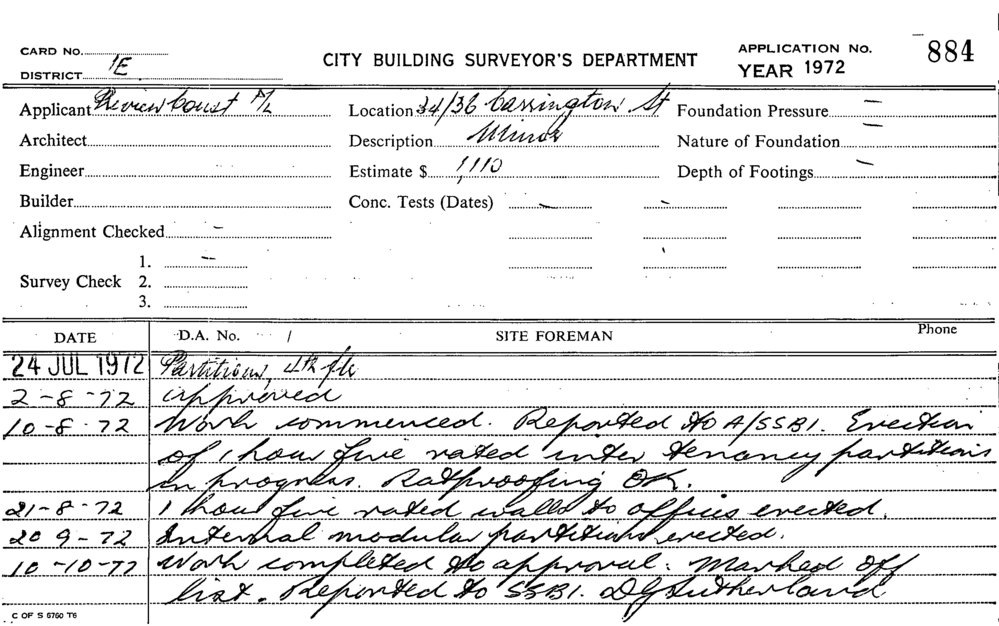 CARD No.
DISTRICT 1E
CITY BUILDING SURVEYOR'S DEPARTMENT
APPLICATION No. 884
YEAR 1972
Applicant Review Const P/L
Location 34/36 Carrington St
Foundation Pressure —
Architect
Description Minor
Nature of Foundation —
Engineer
Estimate $ 1,110
Depth of Footings —
Builder
Conc. Tests (Dates)
Alignment Checked -
1. -
Survey Check 2.
3.
DATE
D.A. No. /
SITE FOREMAN
Phone
24 JUL 1972 Partitions, 4th flr
2-8-72 approved
10-8-72 Work commenced. Reported to A/SSBI. Erection
of 1 hour fire rated inter tenancy partitions
in progress. Ratproofing OK.
21-8-72 1 hour fire rated walls to offices erected.
20 9-72 Internal modular partitions erected.
10-10-72 Work completed to approval. Marked off
list. Reported to SSBI. DG Sutherland
C OF S 6760 T6